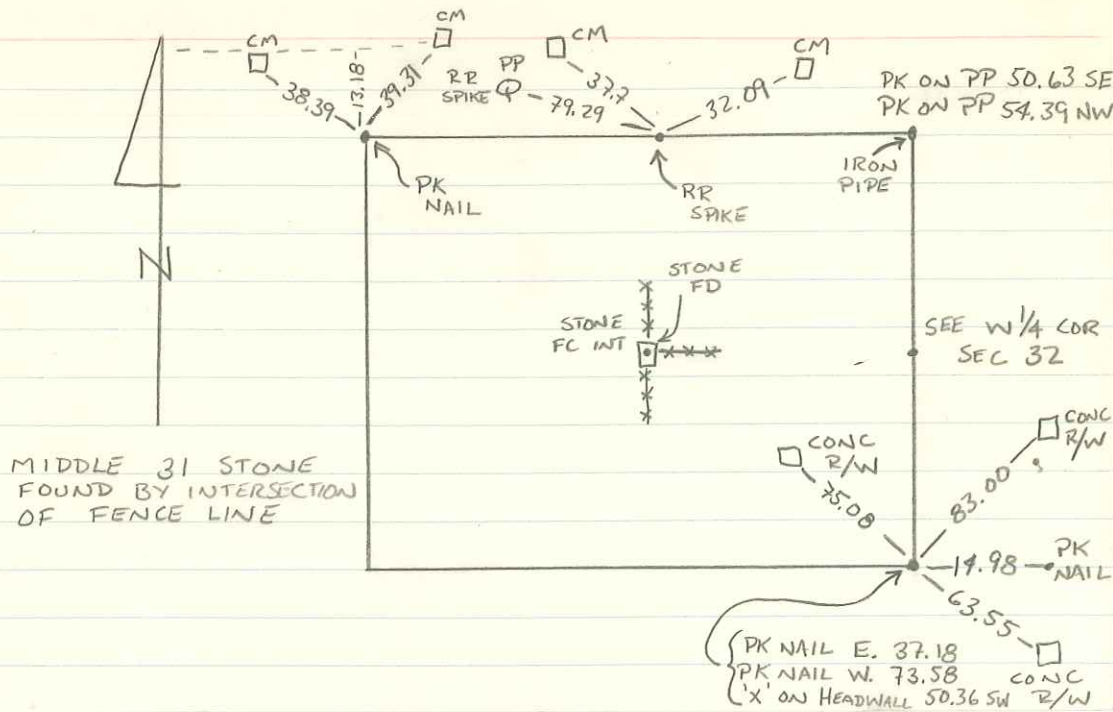 CM
CM
CM
CM
38.39
13.18
39.31
RR
SPIKE
PP
37.7
79.29
32.09
PK ON PP 50.63 SE
PK ON PP 54.39 NW
PK
NAIL
RR
SPIKE
IRON
PIPE
N
STONE
FD
STONE
FC INT
SEE W 1/4 COR
SEC 32
MIDDLE 31 STONE
FOUND BY INTERSECTION
OF FENCE LINE
CONC
R/W
75.08
CONC
R/W
83.00
14.98
PK
NAIL
63.55
CONC
R/W
PK NAIL E. 37.18
PK NAIL W. 73.58
'X' ON HEADWALL 50.36 SW